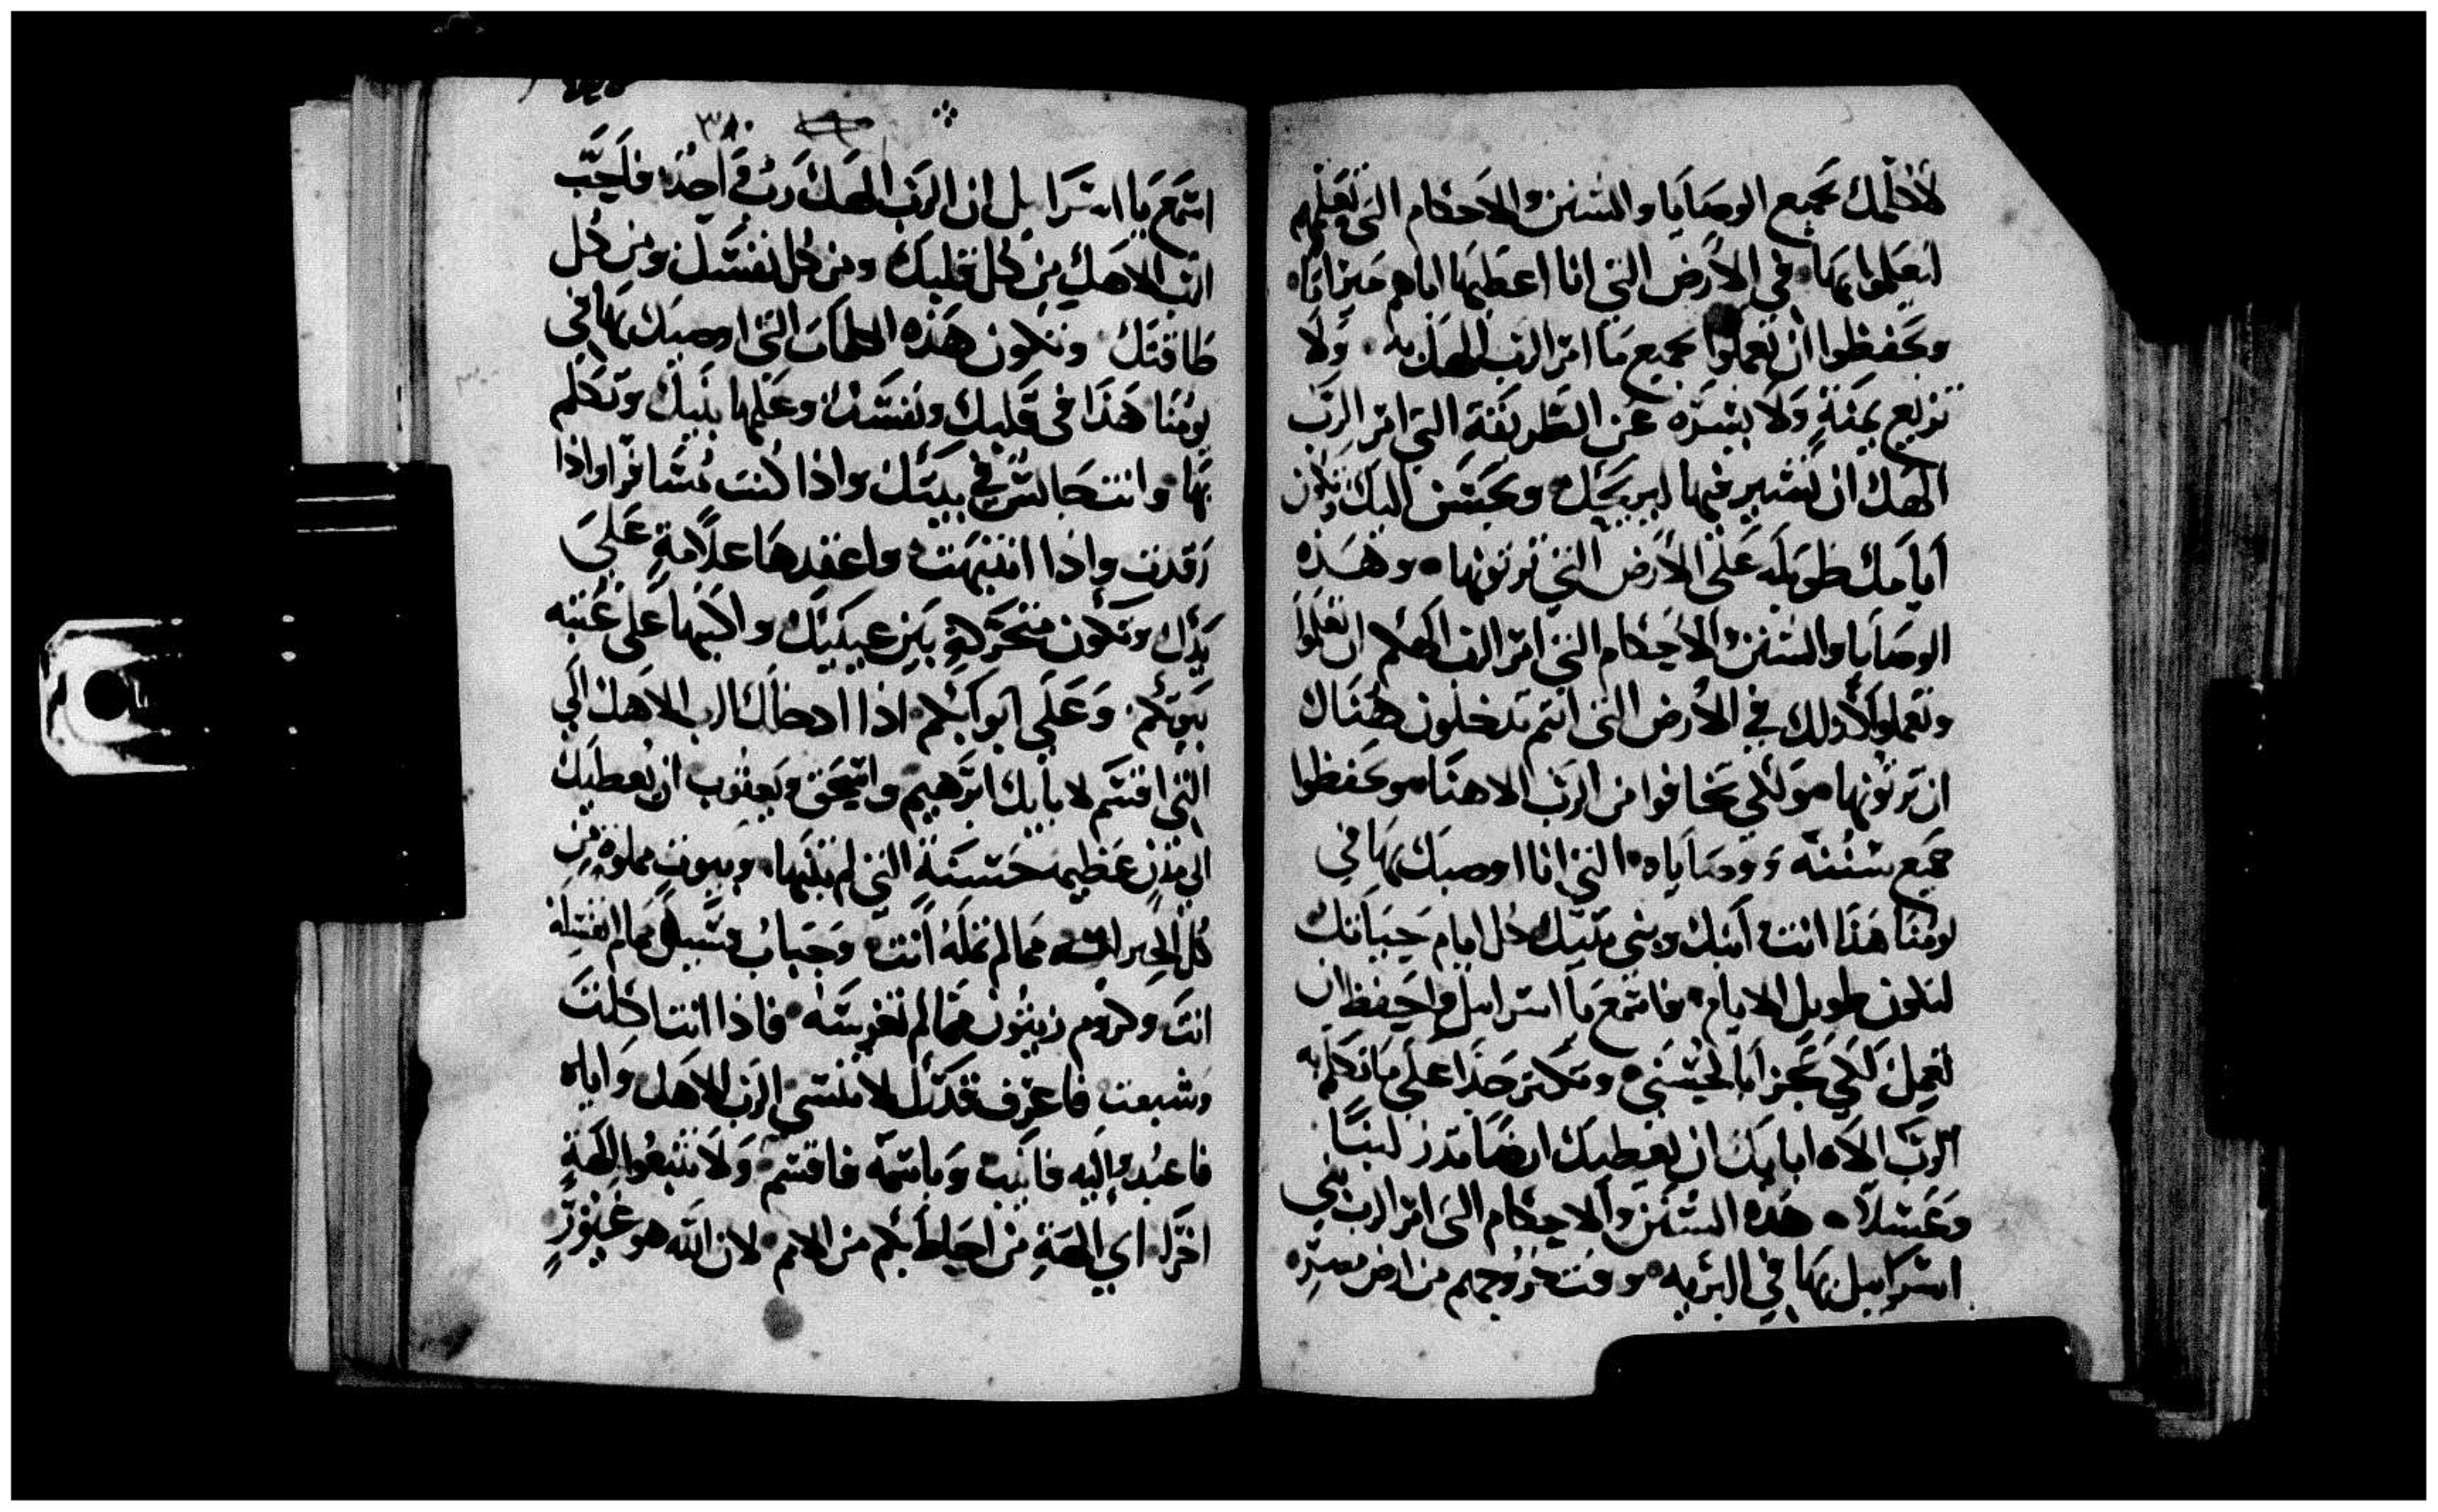 لاكلمك بجميع الوصايا والسنن والاحكام التي تعلمهم
ليعملوا بها في الارض التي انا اعطيها اياهم ميراثا
وتحفظوا ان تعملوا بجميع ما امر الرب الهك به ولا
تزيغ يمنة ولا يسره عن الطريقة التي امر الرب
الهك ان تسير فيها ليريحك ويحسن اليك وتكون
ايامك طويله على الارض التي ترثونها وهذه
الوصايا والسنن والاحكام التي امر الرب الهكم ان تعلموا
وتعملوا كذلك في الارض التي انتم تدخلون هناك
ان ترثونها ولكي تخافوا من الرب الاهنا وتحفظوا
جميع سننه ووصاياه التي انا اوصيك بها في
يومنا هذا انت ابنك وبني بنيك كل ايام حياتك
لتكون طويل الايام فاسمع يا اسراييل واحفظ ان
تعمل لكي تجزا بالحسني وتكتر جدا على ما تكلم به
الرب الاه ابايك ان يعطيك ارضا تدر لبنا
وعسلا هذه السنن والاحكام التي امر الرب بني
اسراييل بها في البريه وقت خروجهم من ارض مصر
٣٨٠
اسمع يا اسراييل ان الرب الهك رب واحد فلتحب
الرب الاهك من كل قلبك ومن كل نفسك ومن كل
طاقتك وتكون هذه الكلمات التي اوصيك بها في
يومنا هذا في قلبك ونفسك وعلمها بنيك وتكلم
بها وانت جالس في بيتك واذا كنت مسافرا واذا
رقدت واذا انتبهت واعقدها علامة على
يدك وتكون متحركة بين عينيك واكتبها على عتبه
بيوتكم وعلى ابوابكم اذا ادخلك الرب الاهك الى
التي اقسم لابايك ابرهيم واسحق ويعقوب ان يعطيك
الى مدن عظيمه حسنة التي لم تبنها وبيوت مملوه من
كل الخيرات مما لم تمله انت وجباب مما لم
انت وكروم زيتون مما لم تغرسه فاذا انت اكلت
وشبعت فاعرف قدرك لا تنسى الرب الاهك واياه
فاعبد واليه فانيب وباسمه فاقسم ولا تتبعوا الهة
اخرا اي الهة من احاط بكم من الامم لان الله هو غيور